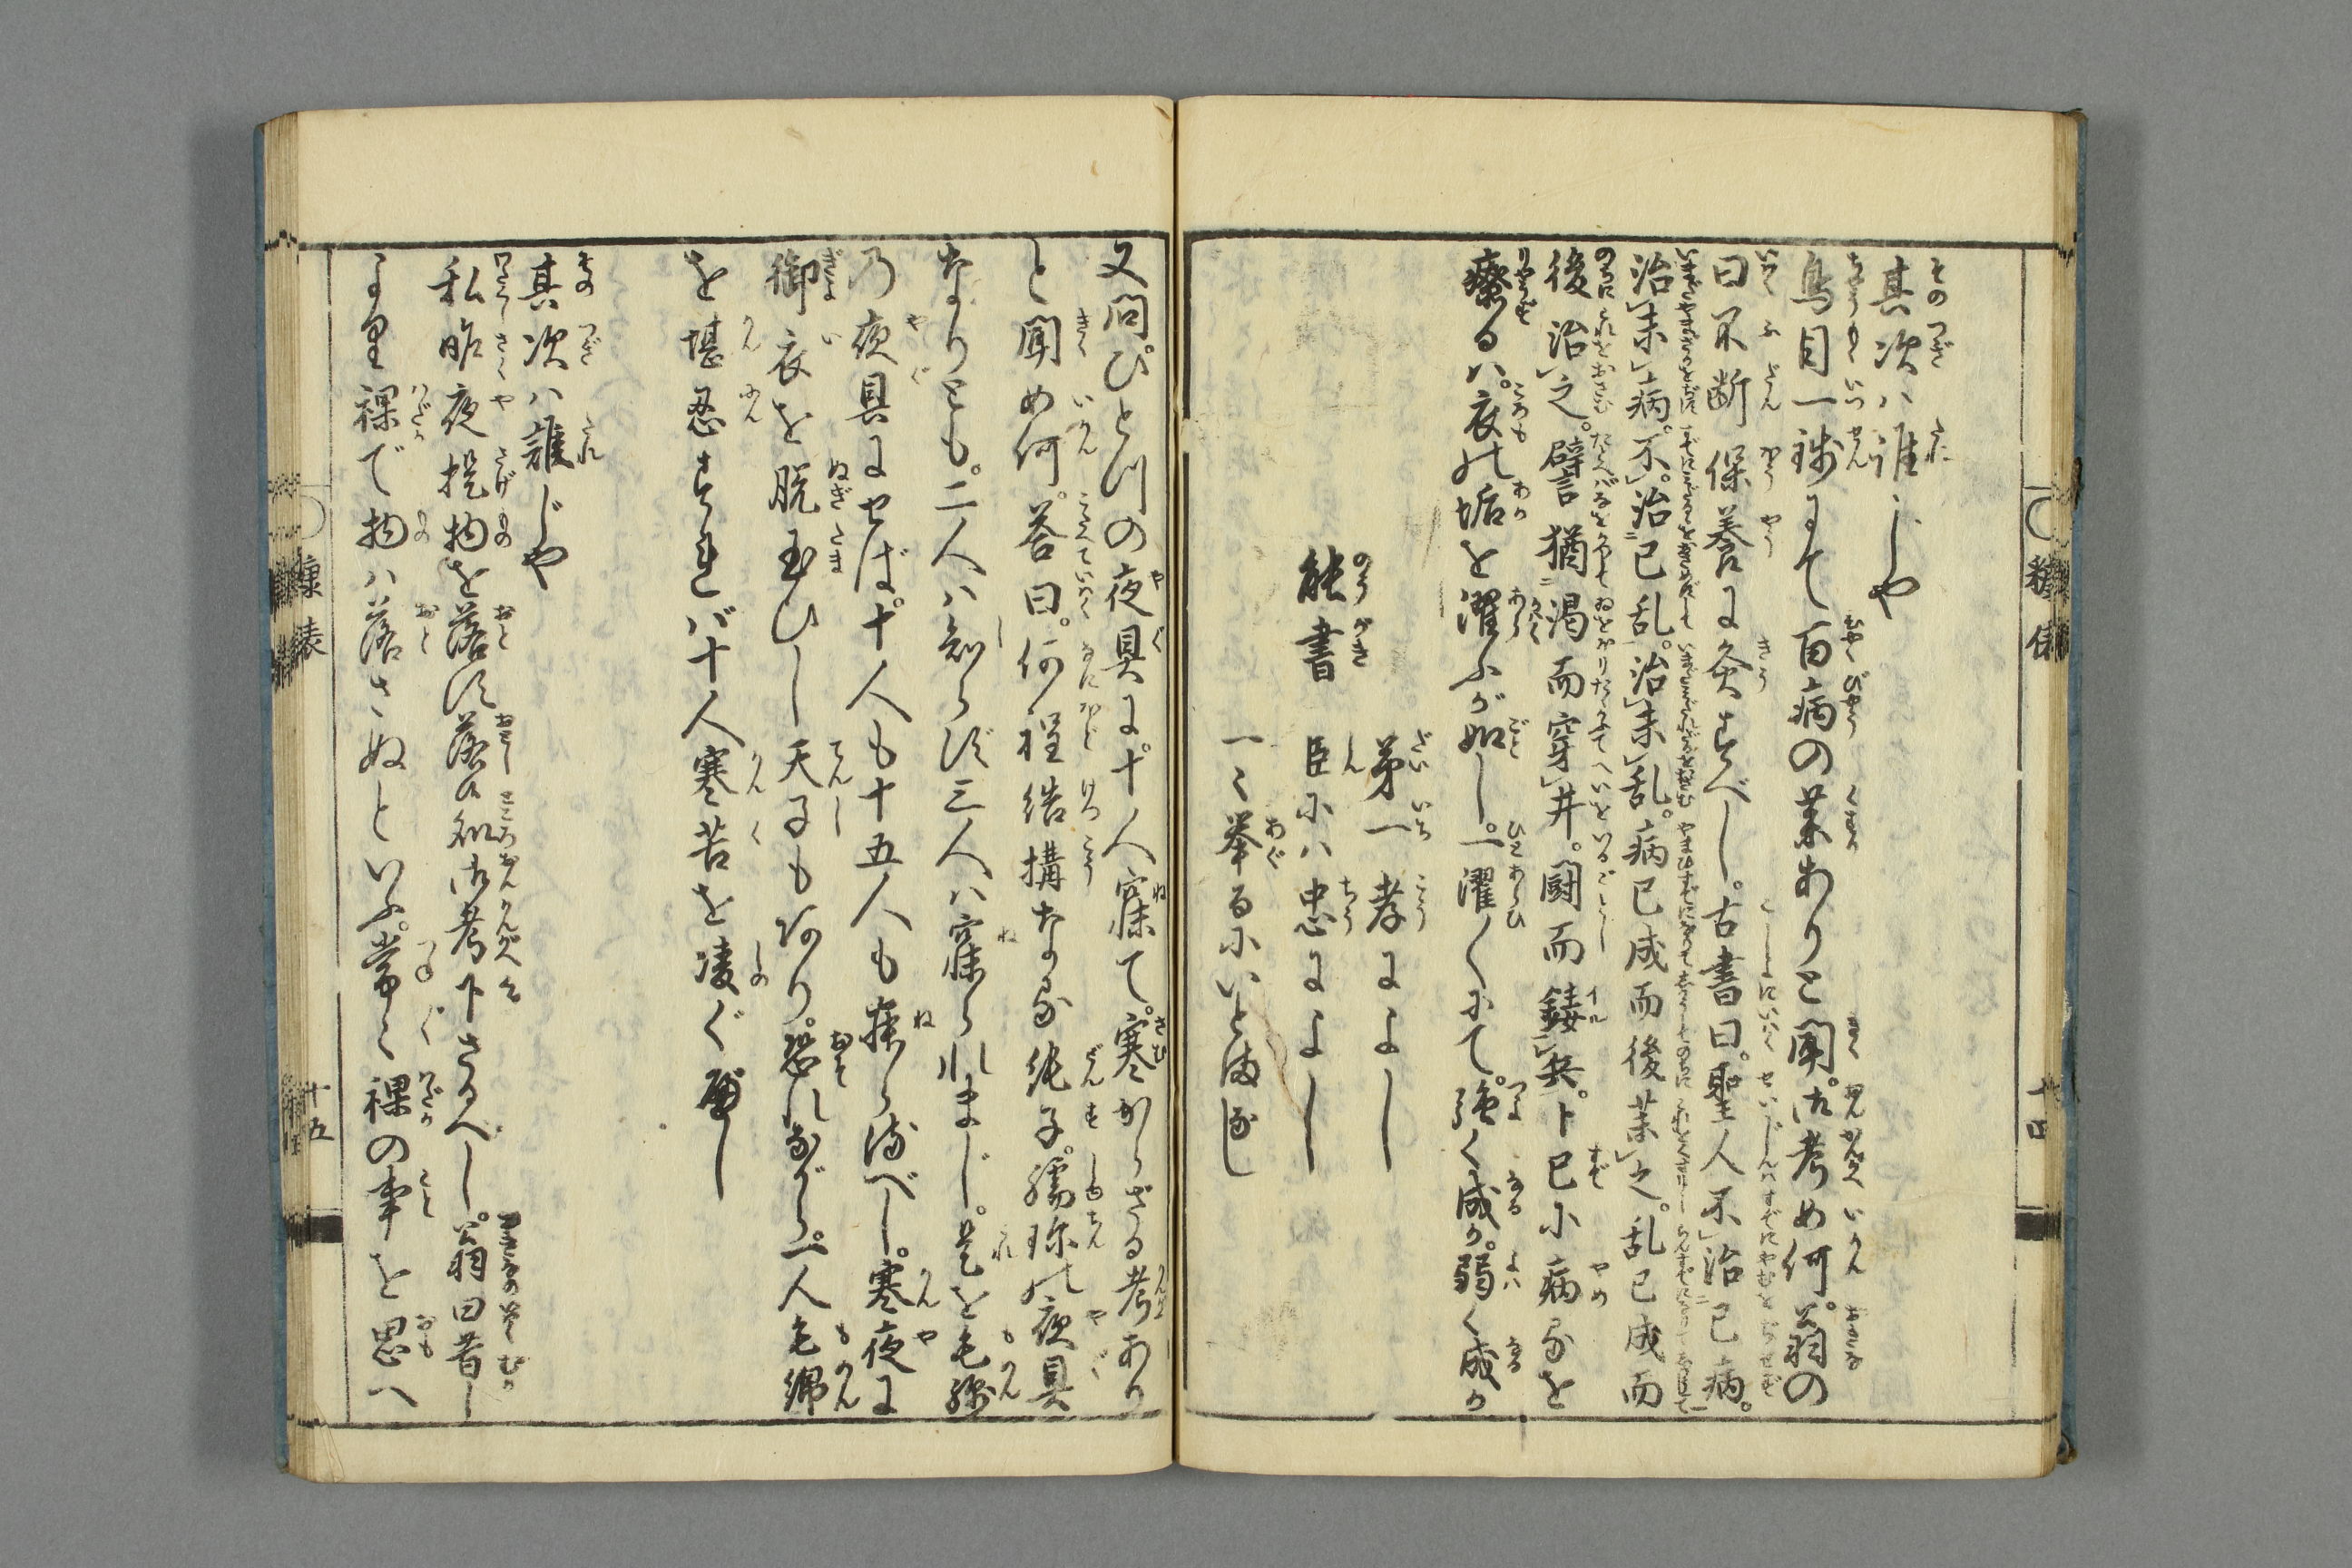 其次ハ誰じや
鳥目一銭にて百病の薬ありと聞。御考如何。翁の
曰不断保養に灸すべし。古書曰。聖人不治已病。
治未病。不治已乱。治未乱。病已成而後薬之。乱已成而
後治之。譬猶渇而穿井。闘而鋳兵。ト已に病るを
療るハ。衣の垢を濯ふが如し。一濯〱にて。強く成か。弱く成か
能書
第一孝によし
臣にハ忠によし
一々挙るにいとまなし
糠俵
十四
又問。ひとつの夜具に。十人寐て。寒からざる考あり
と聞如何。答曰。何程結構なる純子。繻珍の夜具
なりとも。二人ハ知らず三人ハ寐られまじ。是を毛綿
の夜具にせば。十人も十五人も寐らるべし。寒夜に
御衣を脱玉ひし天子もあり。恐れながら。一人毛綿
を堪忍すれバ十人寒苦を凌ぐべし
其次ハ誰じや
私昨夜提物を落す。落せし処御考下さるべし。翁曰昔し
より裸で物ハ落さぬといふ。常々裸の事を思へ
糠俵
十五